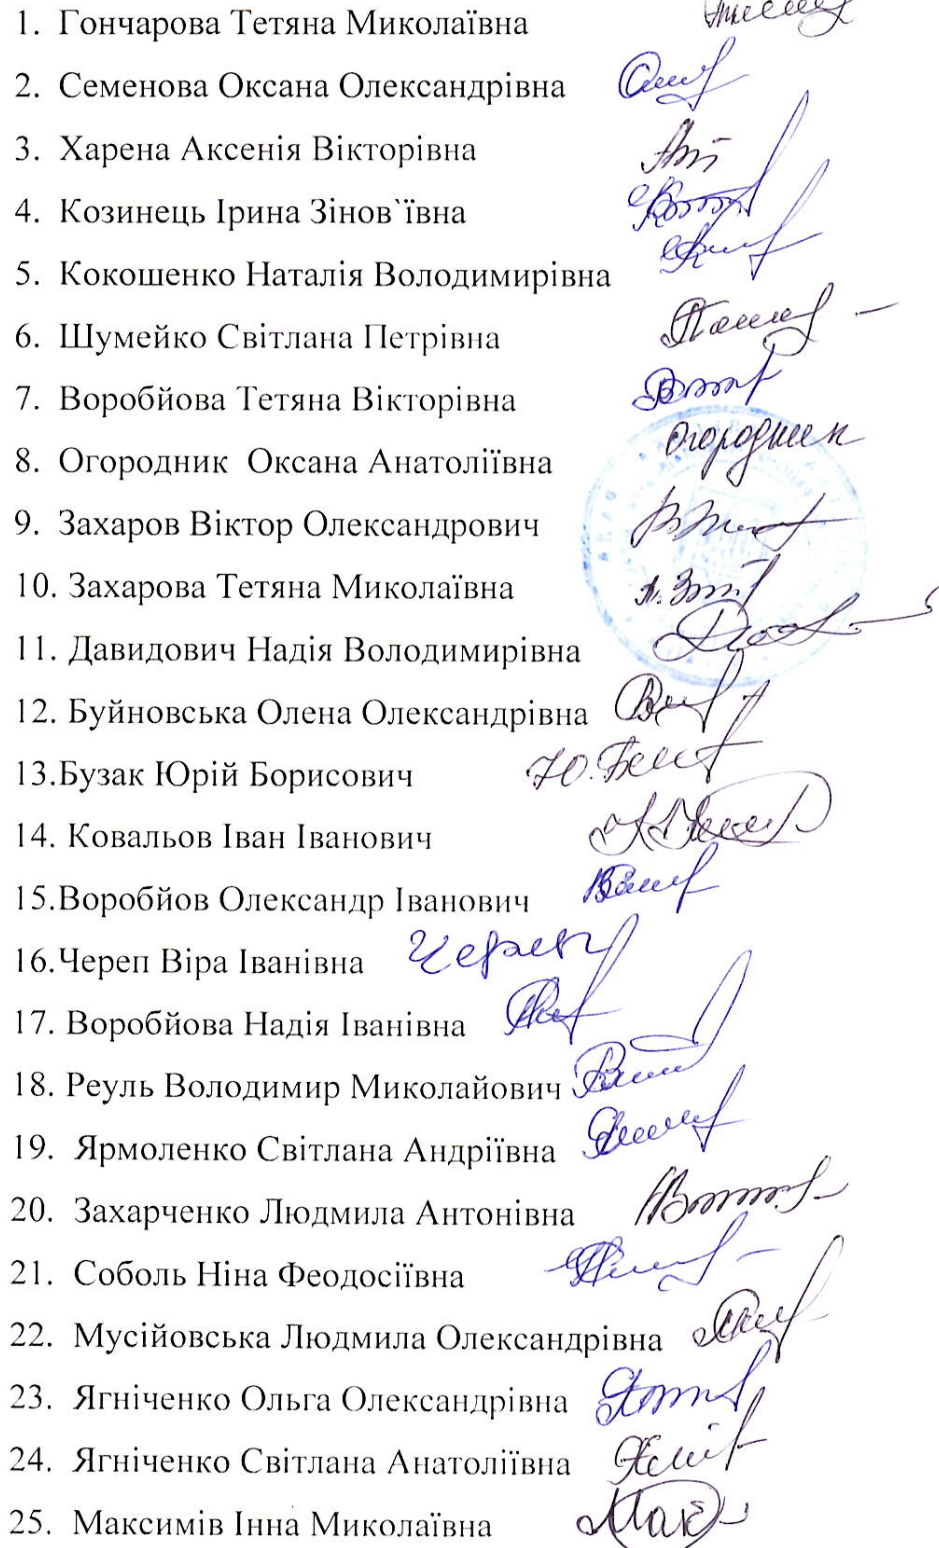 1. Гончарова Тетяна Миколаївна
2. Семенова Оксана Олександрівна
3. Харена Аксенія Вікторівна
4. Козинець Ірина Зінов`ївна
5. Кокошенко Наталія Володимирівна
6. Шумейко Світлана Петрівна
7. Воробйова Тетяна Вікторівна
8. Огородник Оксана Анатоліївна Огородник
9. Захаров Віктор Олександрович
10. Захарова Тетяна Миколаївна
11. Давидович Надія Володимирівна
12. Буйновська Олена Олександрівна
13.Бузак Юрій Борисович
14. Ковальов Іван Іванович
15.Воробйов Олександр Іванович
16.Череп Віра Іванівна
17. Воробйова Надія Іванівна
18. Реуль Володимир Миколайович
19. Ярмоленко Світлана Андріївна
20. Захарченко Людмила Антонівна
21. Соболь Ніна Феодосіївна
22. Мусійовська Людмила Олександрівна
23. Ягніченко Ольга Олександрівна
24. Ягніченко Світлана Анатоліївна
25. Максимів Інна Миколаївна